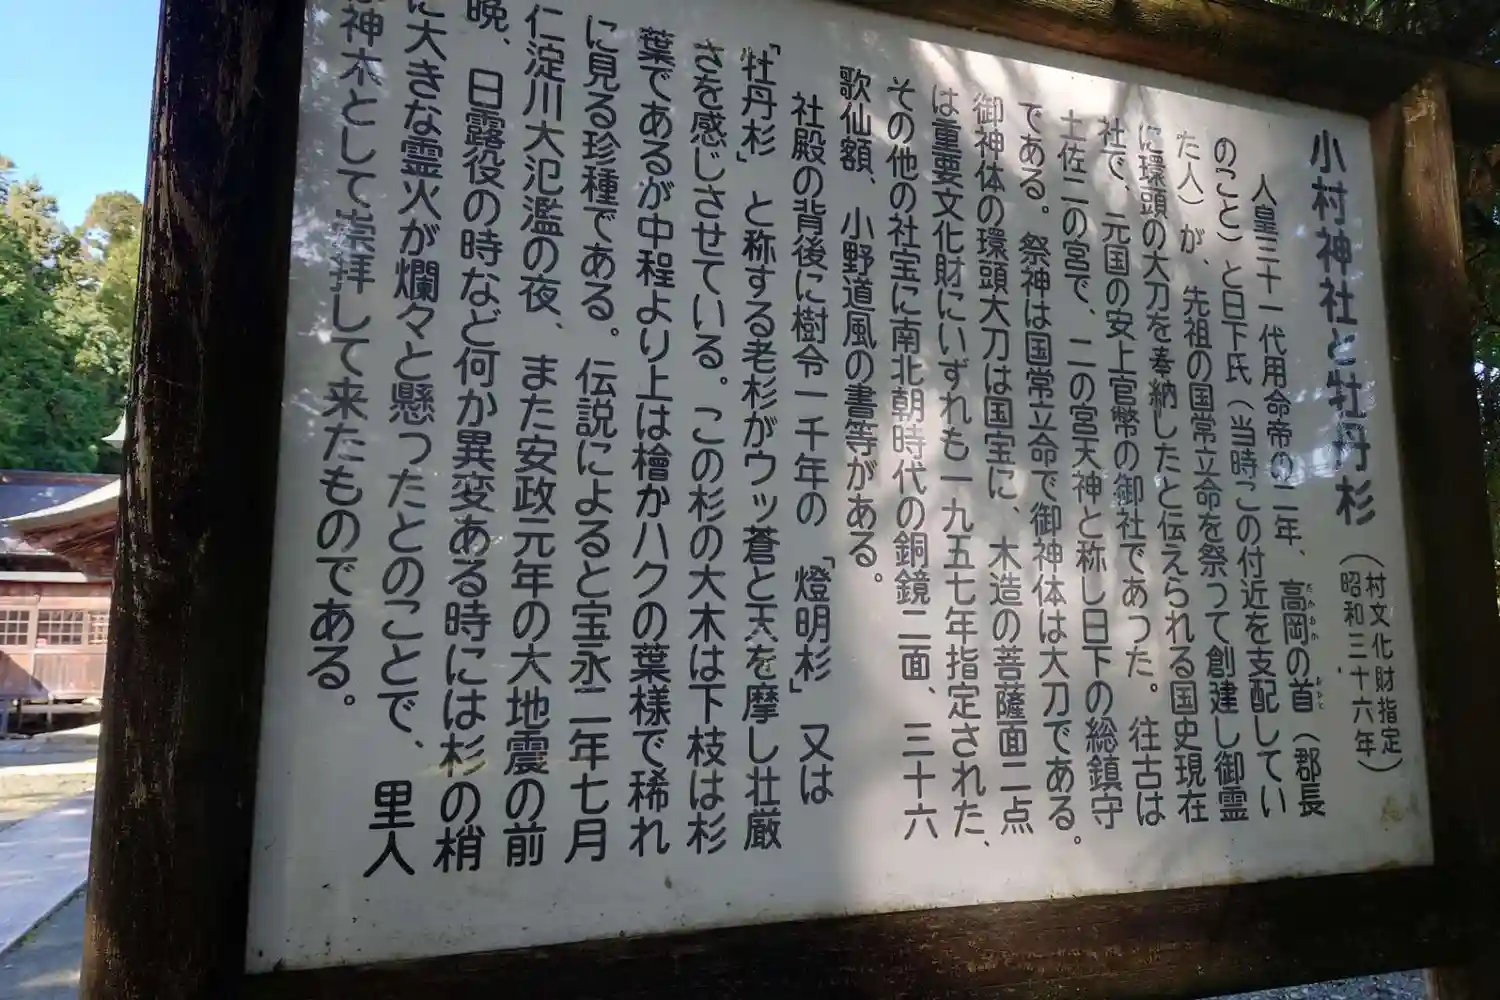 小村神社と牡丹杉
（村文化財指定
昭和三十六年）
人皇三十一代用命帝の二年、高岡の首（郡長
たかおか
おびと
のこと）と日下氏（当時この付近を支配してい
た人）が、先祖の国常立命を祭って創建し御霊
に環頭の大刀を奉納したと伝えられる国史現在
社で、元国の安上官幣の御社であった。往古は
土佐二の宮で、二の宮天神と称し日下の総鎮守
である。祭神は国常立命で御神体は大刀である。
御神体の環頭大刀は国宝に、木造の菩薩面二点
は重要文化財にいずれも一九五七年指定された、
その他の社宝に南北朝時代の銅鏡二面、三十六
歌仙額、小野道風の書等がある。
社殿の背後に樹令一千年の「燈明杉」又は
「牡丹杉」と称する老杉がウッ蒼と天を摩し壮厳
さを感じさせている。この杉の大木は下枝は杉
葉であるが中程より上は檜かハクの葉様で稀れ
に見る珍種である。伝説によると宝永二年七月
仁淀川大氾濫の夜、また安政元年の大地震の前
晩、日露役の時など何か異変ある時には杉の梢
に大きな霊火が爛々と懸つたとのことで、里人
は神木として崇拝して来たものである。